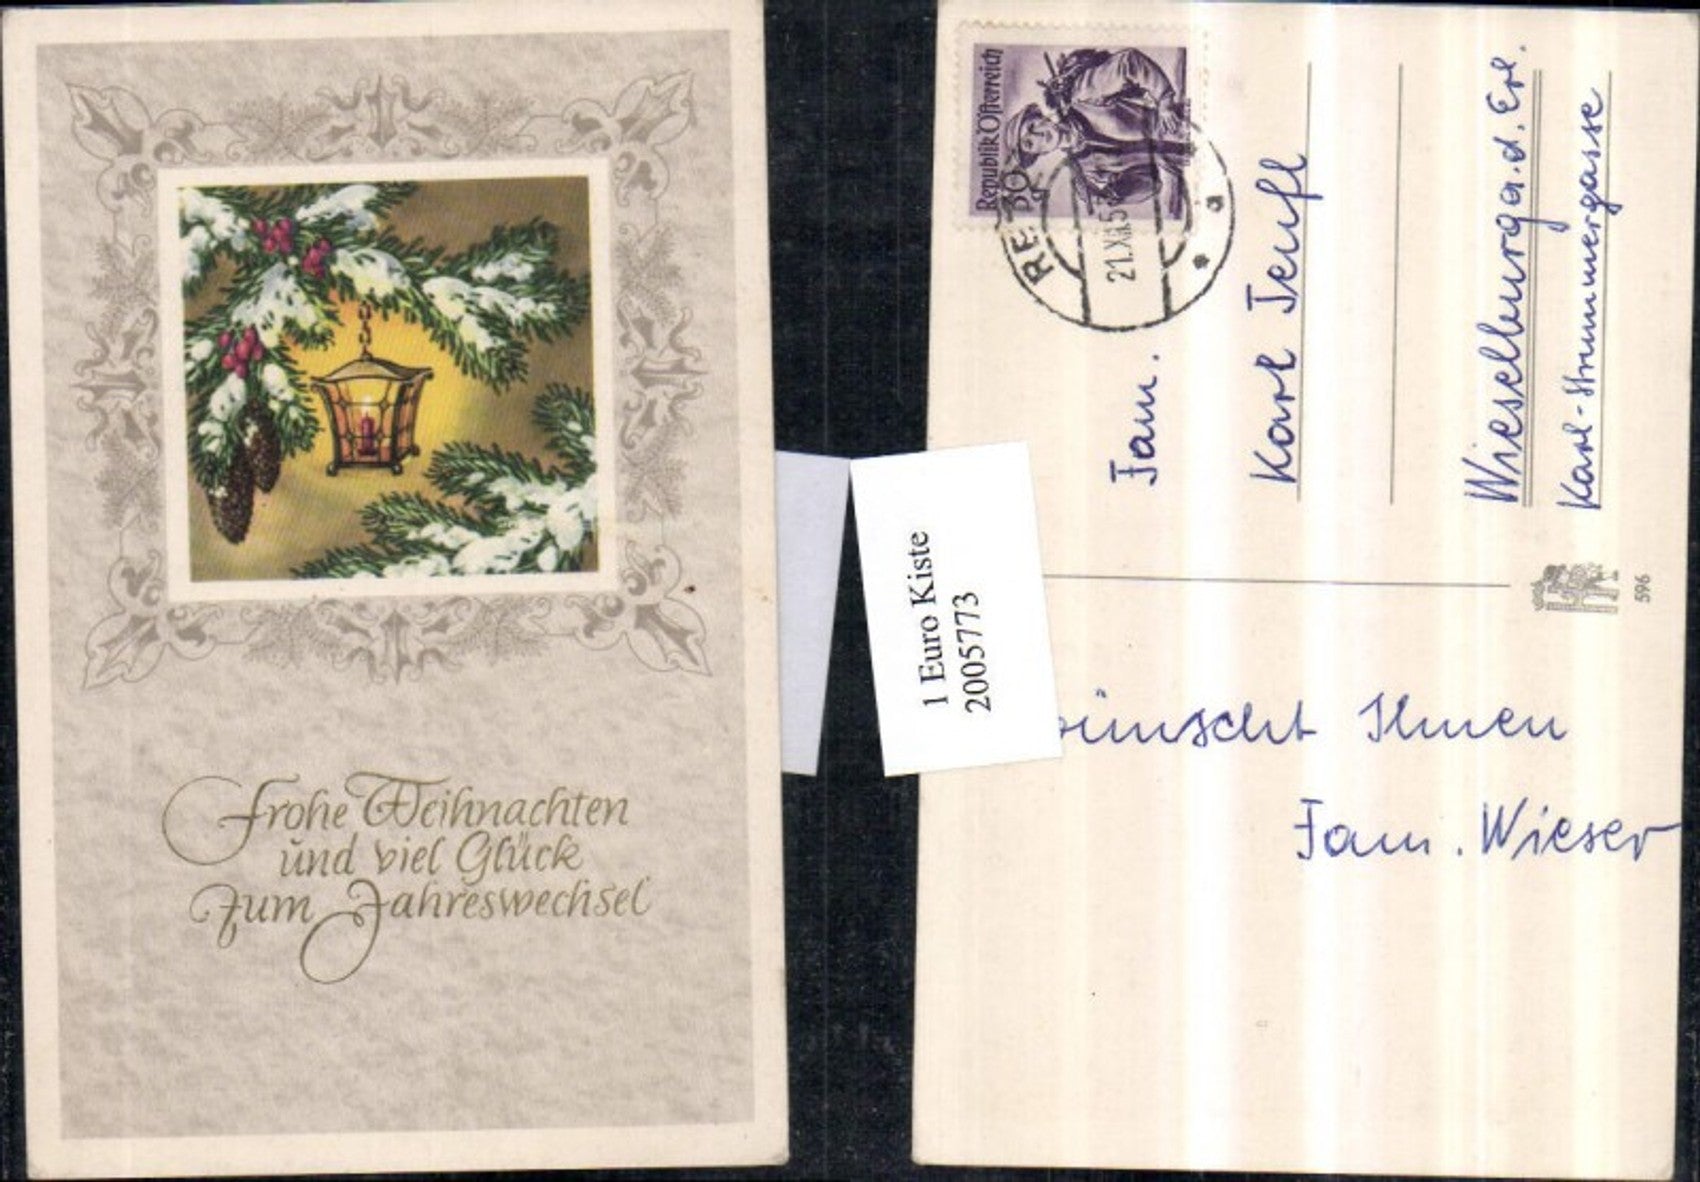 Frohe Weihnachten
und viel Glück
zum Jahreswechsel
1 Euro Kiste
2005773
Republik Österreich
21.XII.5
a
Fam.
Karl Teufl
Wieselburg a. d. Erl.
Karl-Strummergasse
596
wünscht Ihnen
Fam. Wieser